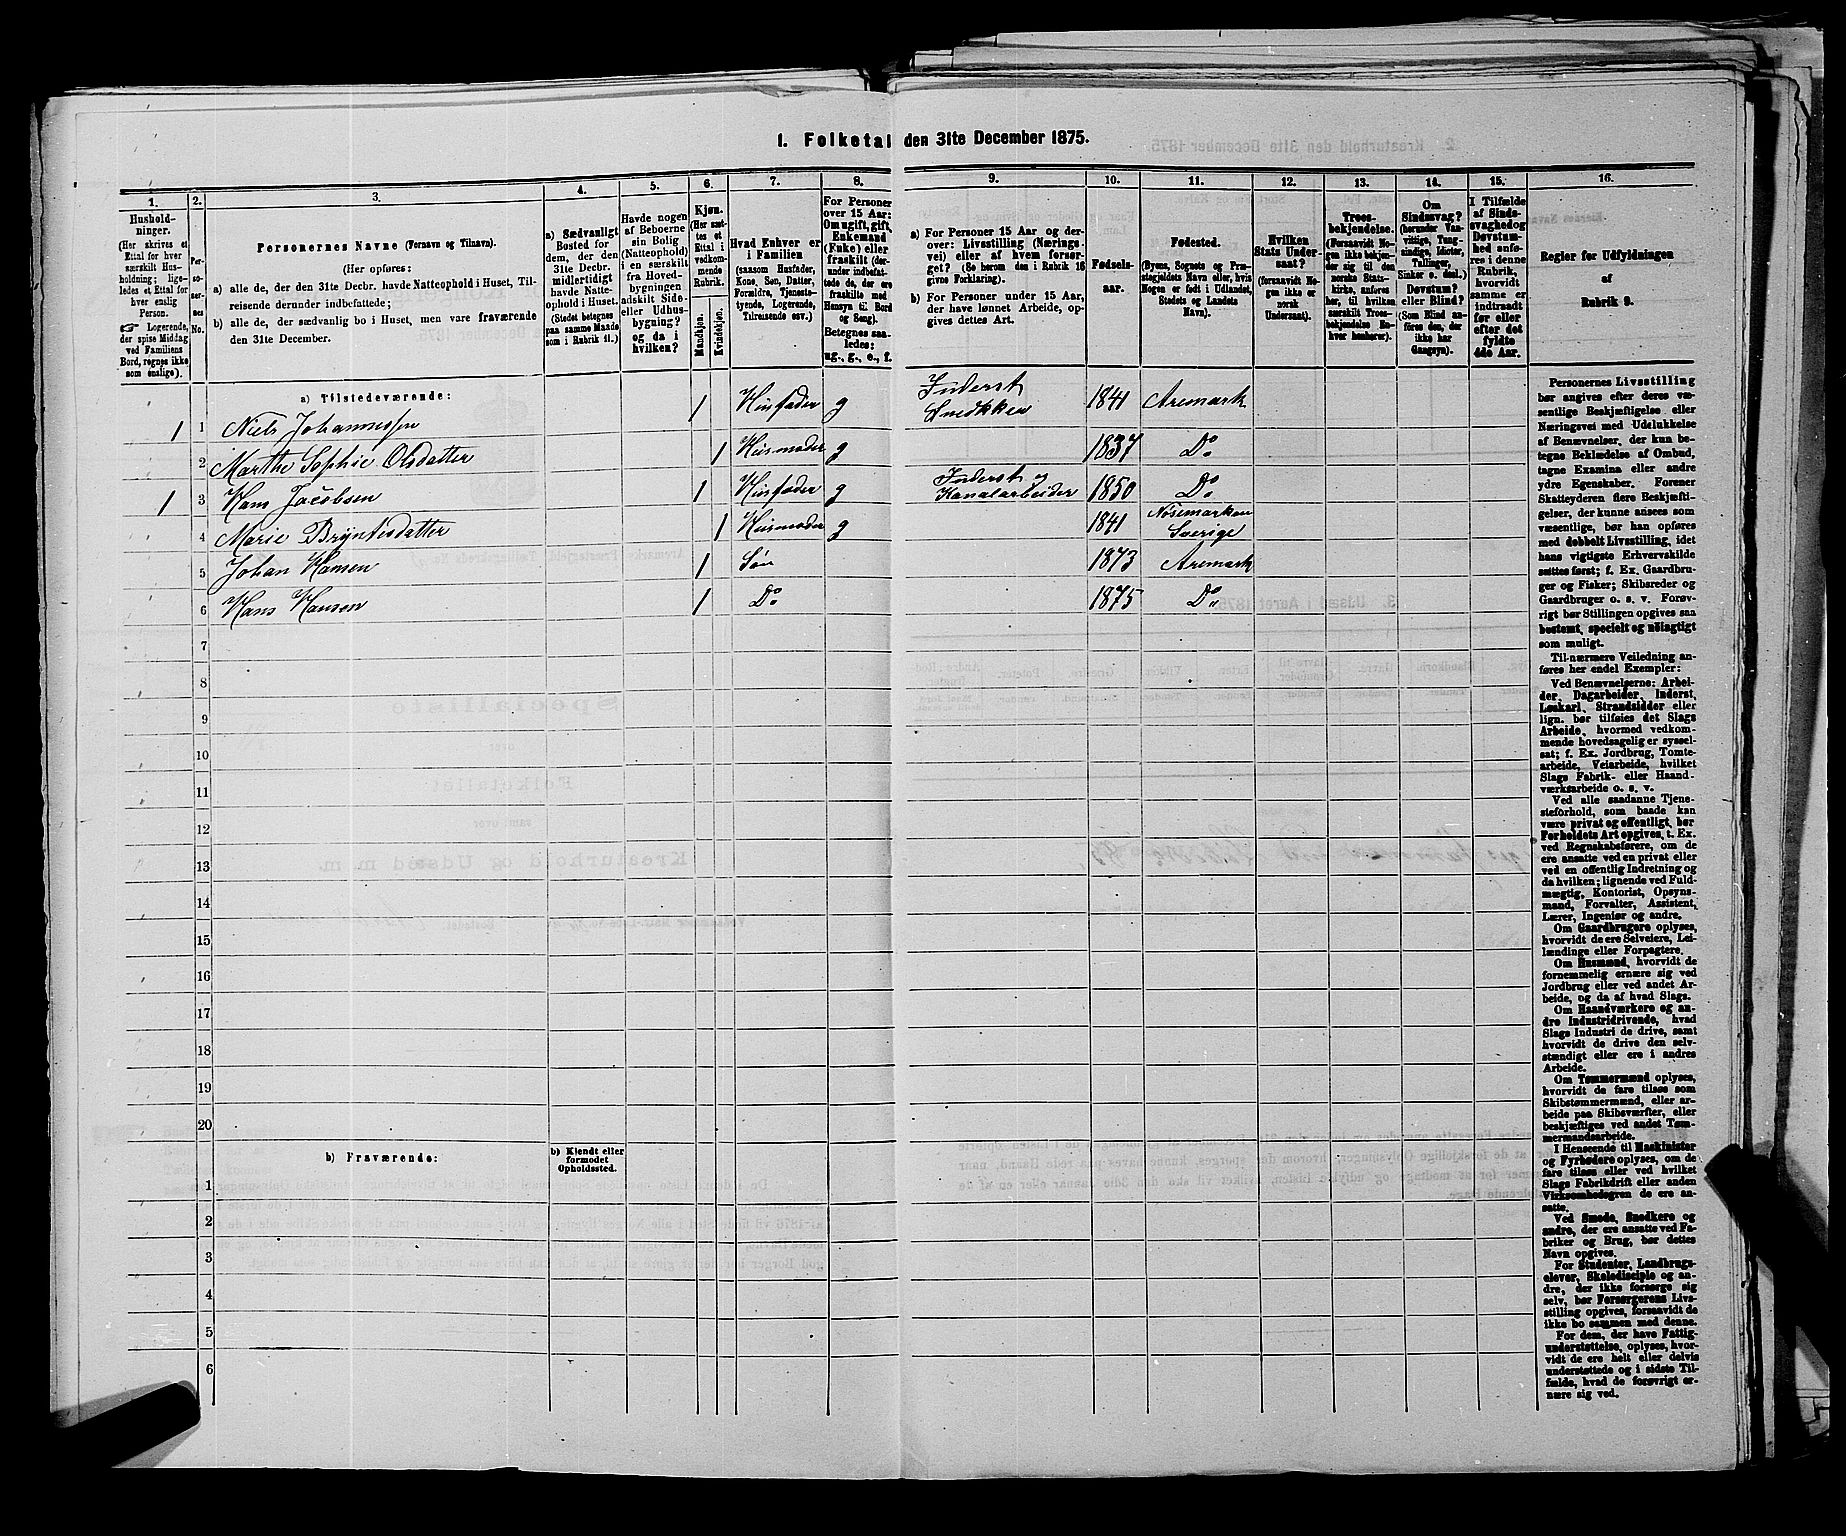 1. Folketal den 31te December 1875.
1.
2.
3.
4.
5.
6.
7.
8.
9.
10.
11.
12.
13.
14.
15.
16.
Hushold-
ninger.
(Her skrives et
Ettal for hver
særskilt Hus-
holdning; lige-
ledes et Ettal for
hver enslig
Person.
☞ Logerende,
der spise Middag
ved Familiens
Bord, regnes ikke
som enslige).
Per-
so-
ner-
nes
No.
Personernes Navne (Fornavn og Tilnavn).
(Her opføres:
a) alle de, der den 31te Decbr. havde Natteophold i Huset, Til-
reisende derunder indbefattede;
b) alle de, der sædvanlig bo i Huset, men vare fraværende
den 31te December.
a) Sædvanligt
Bosted for
dem, der den
31te Decbr.
midlertidigt
havde Natte-
ophold i Huset.
(Stedet betegnes
paa samme Maade
som i Rubrik 11.)
Havde nogen
af Beboerne
sin Bolig
(Natteophold)
i en særskilt
fra Hoved-
bygningen
adskilt Side-
eller Udhus-
bygning?
og da i
hvilken?
Kjøn.
(Her sæt-
tes et
Ettal i
vedkom-
mende
Rubrik.
Mandkjøn.
Kvindekjøn.
Hvad Enhver er
i Familien
(saasom Husfader,
Kone, Søn, Datter,
Forældre, Tjeneste-
tyende, Logerende,
Tilreisende osv.)
For Personer
over 15 Aar:
Om ugift, gift,
Enkemand
(Enke) eller
fraskilt (der-
under indbefat-
tede de, der ere
fraskilte med
Hensyn til Bord
og Seng).
Betegnes saa-
ledes:
ug., g., e., f.
a) For Personer 15 Aar og der-
over: Livsstilling (Nærings-
vei) eller af hvem forsør-
get? (Se herom den i Rubrik 16
givne Forklaring).
b) For Personer under 15 Aar,
der have lønnet Arbeide, op-
gives dettes Art.
Fødsels-
aar.
Fødested.
(Byens, Sognets og Præ-
stegjeldets Navn eller, hvis
Nogen er født i Udlandet,
Stedets og Landets
Navn).
Hvilken
Stats Under-
saat?
(forsaavidt No-
gen ikke er
norsk
Undersaat).
Troes-
bekjendelse.
(Forsaavidt No-
gen ikke bekjen-
der sig til den
norske Stats-
kirke, anføres
her, til hvilken
særskilt Troes-
bekjendelse En-
hver henhører).
Om
Sindssvag?
(herunder Van-
vittige, Tung-
sindige, Idioter,
Tullinger,
Sinker o. desl.)
Døvstum?
eller Blind?
(Som Blind an-
føres den, der
ikke har
Gangsyn).
I Tilfælde
af Sinds-
svaghed og
Døvstum-
hed anfø-
res i denne
Rubrik,
hvorvidt
samme er
indtraadt
før eller
efter det
fyldte
4de Aar.
Regler for Udfyldningen
af
Rubrik 9.
a) Tilstedeværende:
1 1 Niels Johannessen 1 Husfader g Inderst Snedkker 1841 Aremark
2 Marthe Sophie Olsdatter 1 Husmoder g 1837 Do
1 3 Hans Jacobsen 1 Husfader g Inderst og Kanalarbeider 1850 Do
4 Marie Bryntesdatter 1 Husmoder g 1841 Nøsemarken Sverige
5 Johan Hansen 1 Søn 1873 Aremark
6 Hans Hansen 1 Do 1875 Do
7
8
9
10
11
12
13
14
15
16
17
18
19
20
b) Fraværende:
b) Kjendt eller
formodet
Opholdssted.
1
2
3
4
5
6
Personernes Livsstilling
bør angives efter deres væ-
sentlige Beskjæftigelse eller
Næringsvei med Udelukkelse
af Benævnelser, der kun be-
tegne Beklædelse af Ombud,
tagne Examina eller andre
ydre Egenskaber. Forener
Skatteyderen flere Beskjæfti-
gelser, der kunne ansees som
væsentlige, bør han opføres
med dobbelt Livsstilling, idet
hans vigtigste Erhvervskilde
sættes først; f. Ex. Gaardbru-
ger og Fisker; Skibsreder og
Gaardbruger o. s. v. Forøv-
rigt bør Stillingen opgives saa
bestemt, specielt og nöiagtigt
som muligt.
Til nærmere Veiledning an-
føres her endel Exempler:
Ved Benævnelserne: Arbei-
der, Dagarbeider, Inderst,
Løskarl, Strandsidder eller
lign. bør tilføies det Slags
Arbeide, hvormed vedkom-
mende hovedsagelig er syssel-
sat; f. Ex. Jordbrug, Tomte-
arbeide, Veiarbeide, hvilket
Slags Fabrik- eller Haand-
værksarbeide o. s. v.
Ved alle saadanne Tjene-
steforhold, som baade kan
være privat og offentligt, bør
Forholdets Art opgives, t. Ex.
ved Regnskabsførere, om de
ere ansatte ved en privat eller
ved en offentlig Indretning og
da hvilken; lignende ved Fuld-
mægtig, Kontorist, Opsyns-
mand, Forvalter, Assistent,
Lærer, Ingeniør og andre.
Om Gaardbrugere oplyses,
hvorvidt de ere Selveiere, Lei-
lændinge eller Forpagtere.
Om Husmænd, hvorvidt de
fornemmelig ernære sig ved
Jordbrug eller ved andet Ar-
beide, og da af hvad Slags.
Om Haandværkere og an-
dre Industridrivende, hvad
Slags Industri de drive, samt
hvorvidt de drive den selv-
stændigt eller ere i andres
Arbeide.
Om Tømmermænd oplyses,
hvorvidt de fare tilsøs som
Skibstømmermænd, eller ar-
beide paa Skibsværfter, eller
beskjæftiges ved andet Tøm-
mermandsarbeide.
I Henseende til Maskinister
og Fyrbødere oplyses, om de
fare tilsøs eller ved hvilket
Slags Fabrikdrift eller anden
Virksomhedsgren de ere an-
satte.
Ved Smede, Snedkere og
andre, der ere ansatte ved Fa-
briker og Brug, bør dettes
Navn opgives.
For Studenter, Landbrugs-
elever, Skoledisciple og an-
dre, der ikke forsørge sig
selv, bør Forsørgerens Livs-
stilling opgives, forsaavidt de
ikke bo sammen med denne.
For dem, der have Fattig-
understøttelse, oplyses, hvor-
vidt de ere helt eller delvis
understøttede og i sidste Til-
fælde, hvad de forøvrigt er-
nære sig ved.